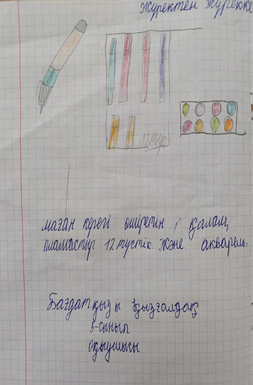 жүректен жүрекке
маған керегі өшіретін қалам,
пламастер 12 түстик және акварель.
Бағдатқызы Қызғалдақ
3-сынып
оқушысы